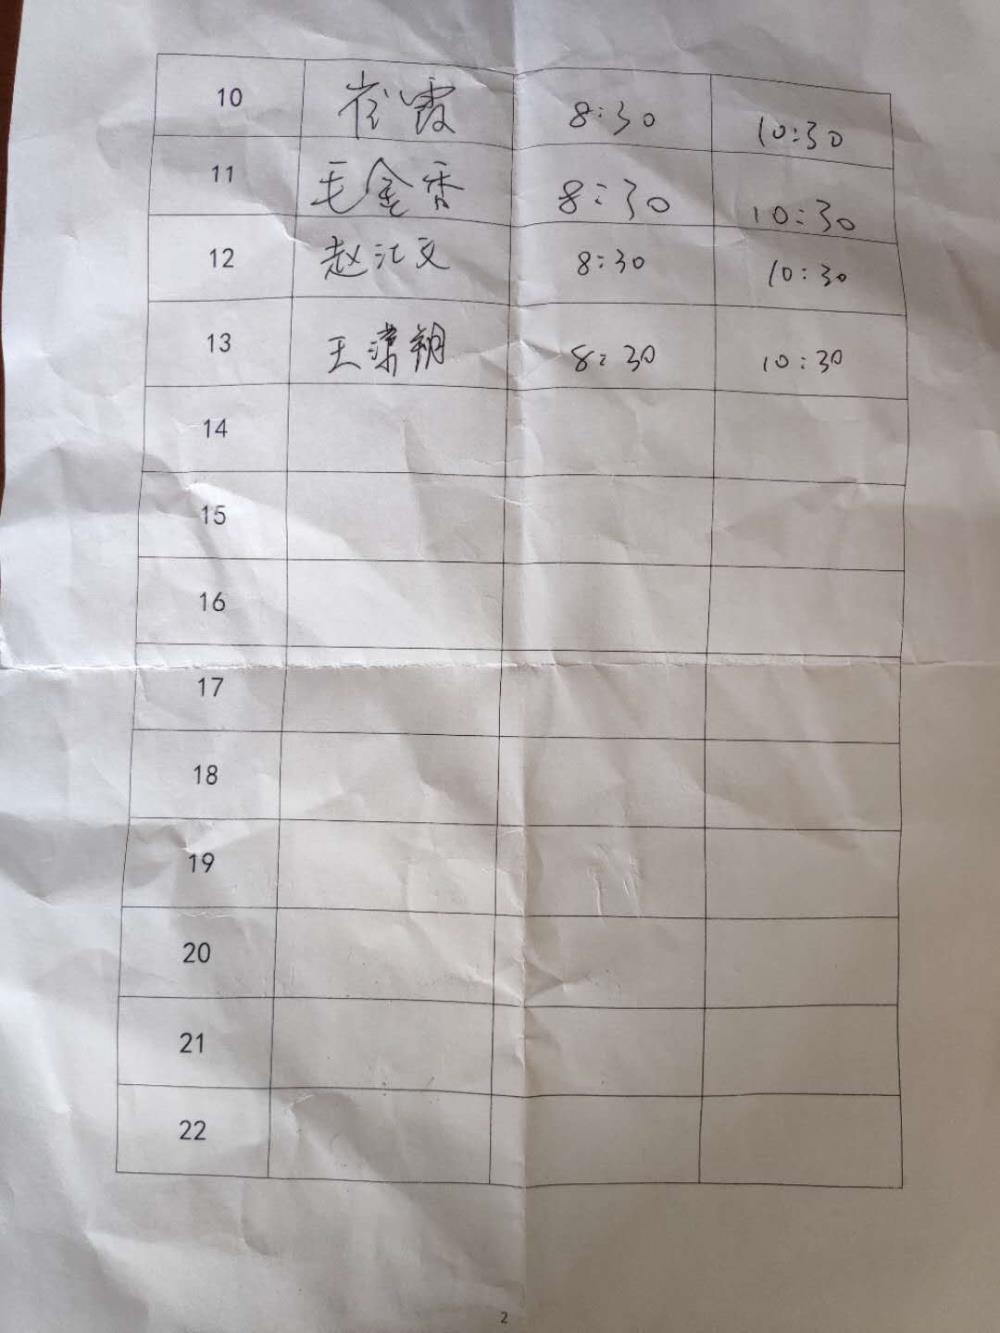 10 崔霞 8:30 10:30
11 毛金香 8:30 10:30
12 赵汇文 8:30 10:30
13 王 8:30 10:30
14
15
16
17
18
19
20
21
22
2